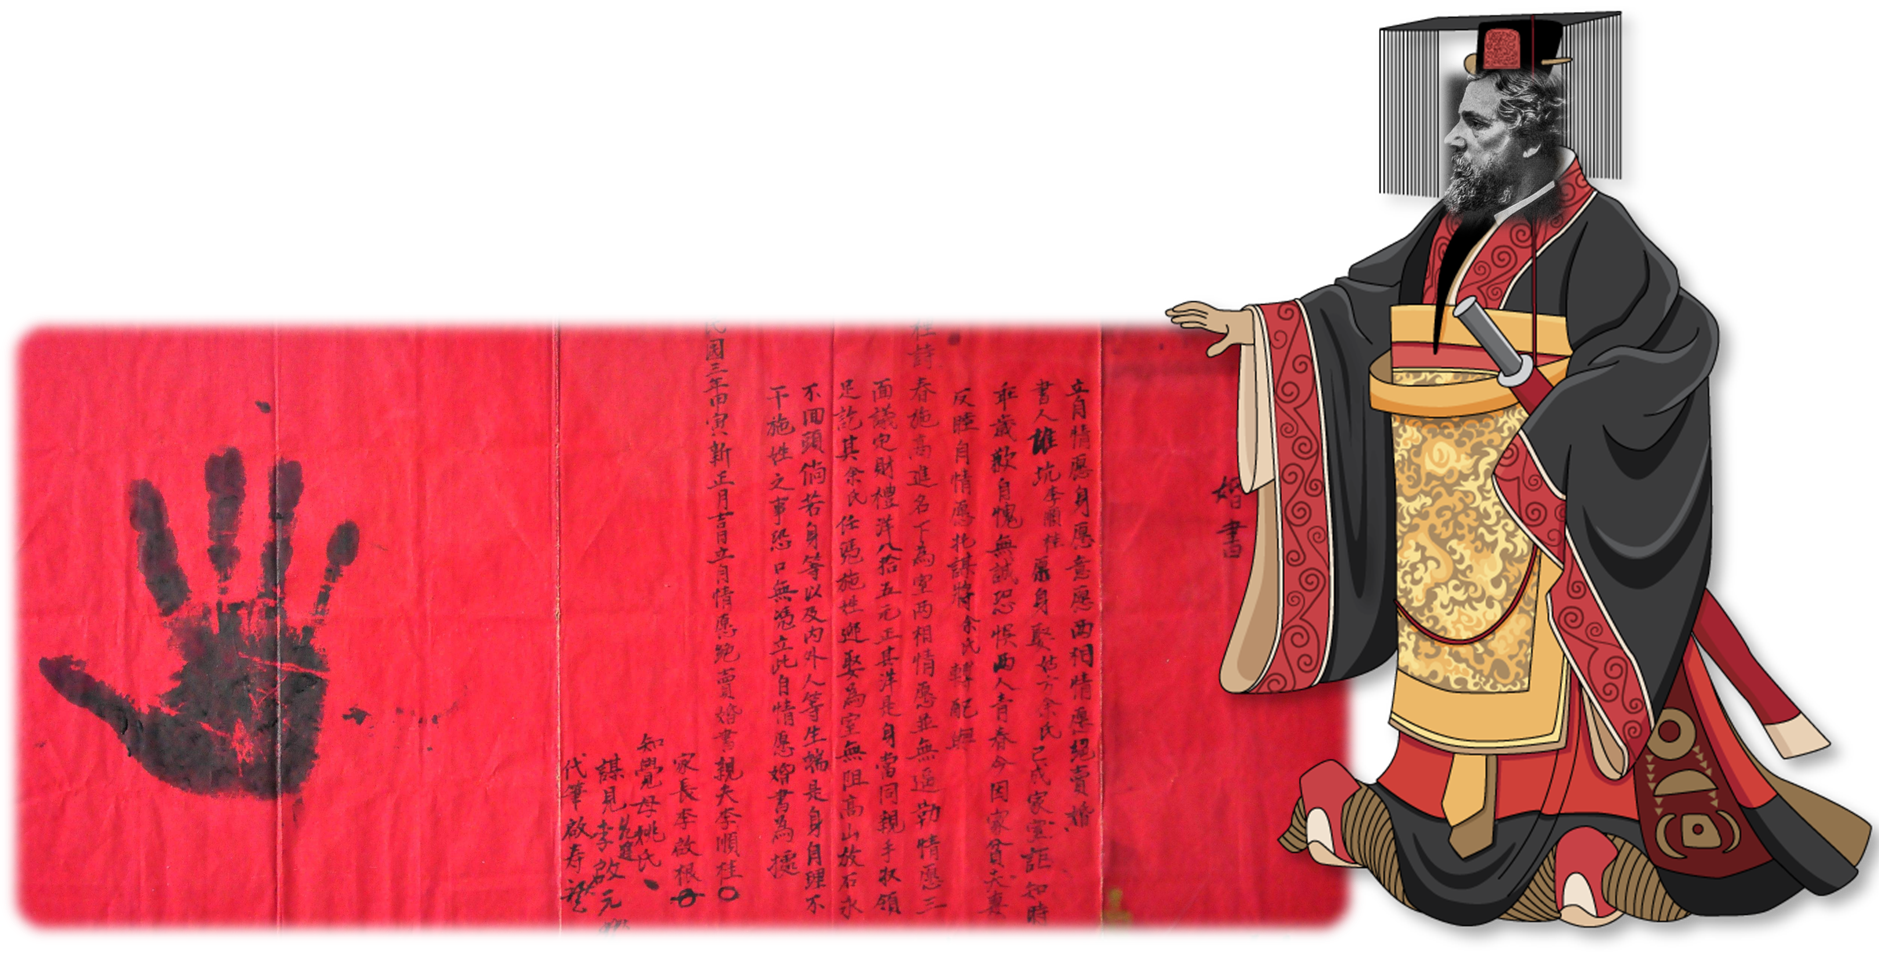 婚書
立自情愿身愿意愿两相情愿絕賣婚
書人雄坑李順桂原身娶姑方余氏己成家室詎知時
乖歲歉自愧無誠恐悞两人青春今因家貧夫妻
反睦自情愿托謀將余氏轉配與
詩春施高進名下為室两相情愿並無逼勒情愿三
面議定財禮洋八拾五元正其洋是身當同親手收領
足訖其余氏任憑施姓迎娶為室無阻高山放石永
不回頭倘若身等以及内外人等生端是身自理不
干施姓之事恐口無憑立此自情愿婚書為據
民国三年甲寅新正月吉日立自情愿絕賣婚書親夫李順桂
家長李啟根
知覺母姚氏
謀見李啟元
代筆啟寿